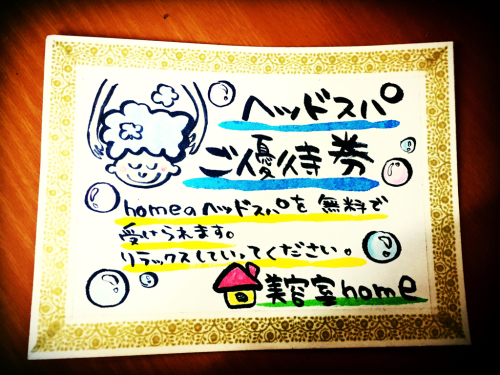 ヘッドスパ
ご優待券
homeのヘッドスパを無料で
受けられます。
リラックスしていってください。
美容室home